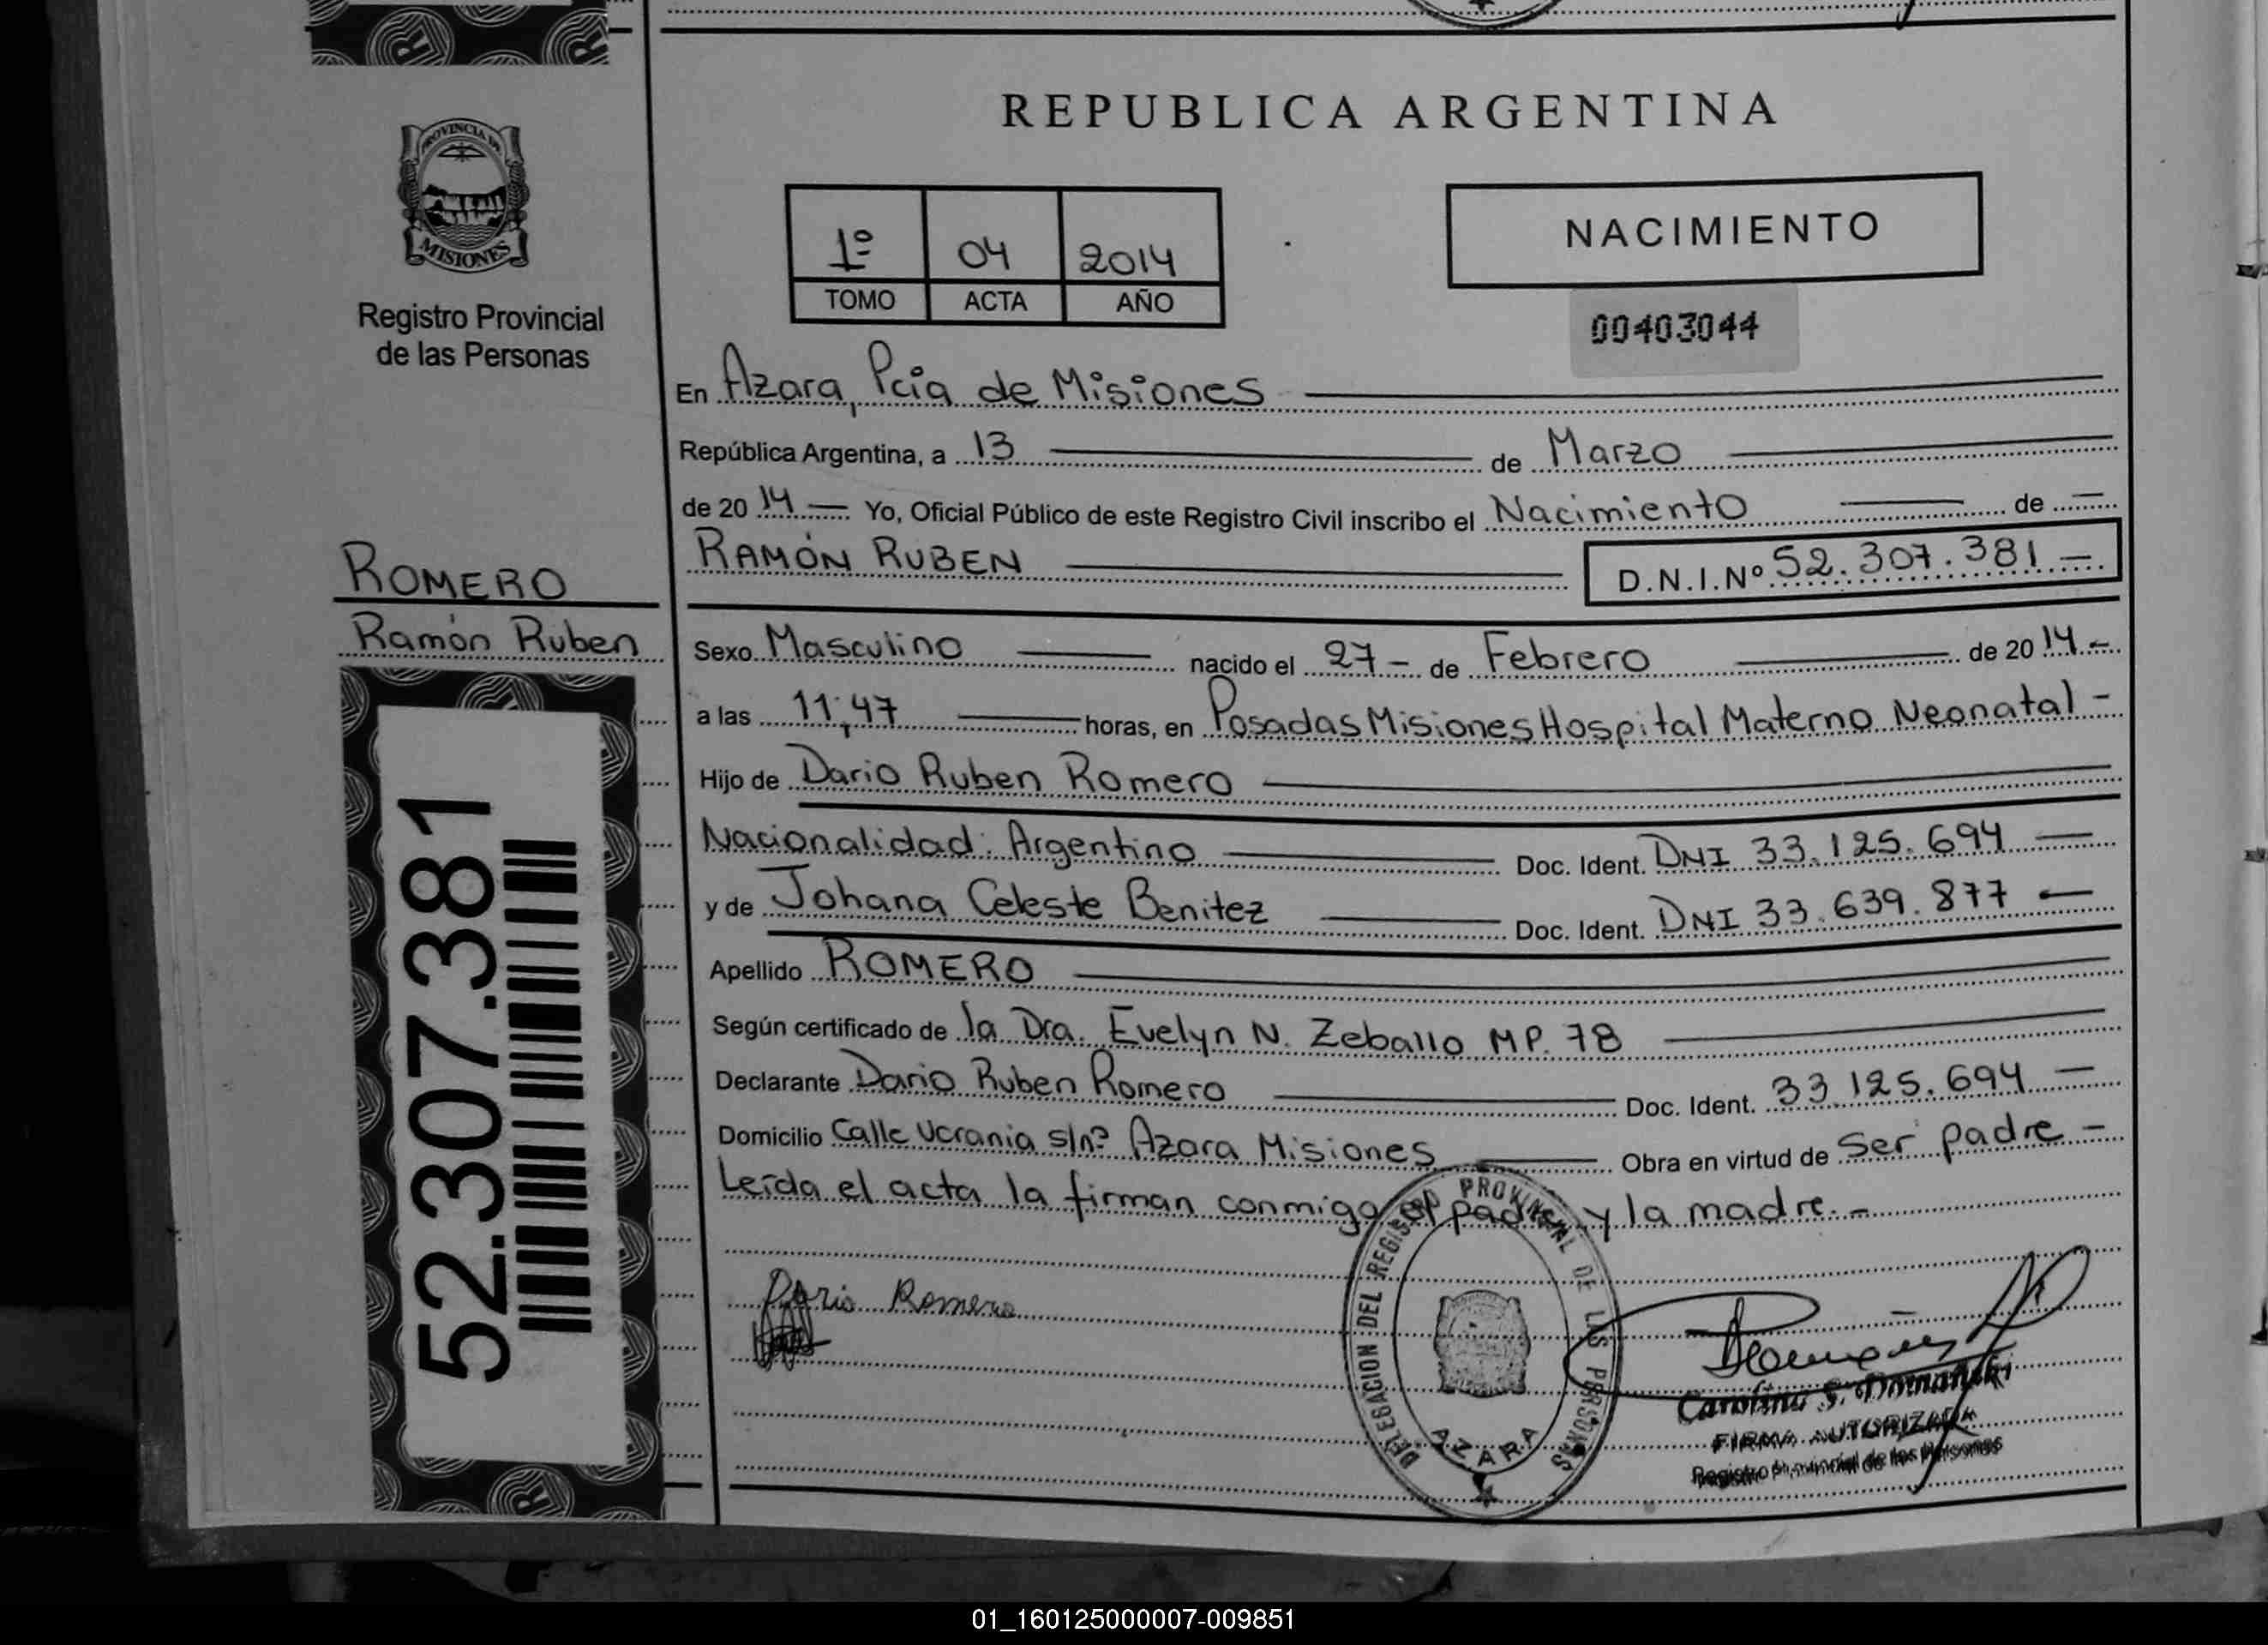 PROVINCIA DE
MISIONES
Registro Provincial
de las Personas
ROMERO
Ramón Ruben
52.307.381
REPUBLICA ARGENTINA
1º 04 2014
TOMO ACTA AÑO
NACIMIENTO
00403044
En Azara, Pcia de Misiones
República Argentina, a 13 de Marzo
de 2014 — Yo, Oficial Público de este Registro Civil inscribo el Nacimiento de —
RAMÓN RUBEN D.N.I.Nº 52.307.381 —
Sexo Masculino nacido el 27 - de Febrero de 2014 -
a las 11;47 horas, en Posadas Misiones Hospital Materno Neonatal -
Hijo de Dario Ruben Romero
Nacionalidad: Argentino Doc. Ident. DNI 33.125.694 —
y de Johana Celeste Benitez Doc. Ident. DNI 33.639.877 —
Apellido ROMERO
Según certificado de la Dra. Evelyn N. Zeballo MP. 78
Declarante Dario Ruben Romero Doc. Ident. 33.125.694 —
Domicilio Calle Ucrania s/nº Azara Misiones Obra en virtud de Ser padre -
Leída el acta la firman conmigo el padre y la madre. -
Dario Romero
DELEGACION DEL REGISTRO PROVINCIAL DE LAS PERSONAS
AZARA
Carolina S. Domański
FIRMA AUTORIZADA
Registro Provincial de las Personas
01_160125000007-009851